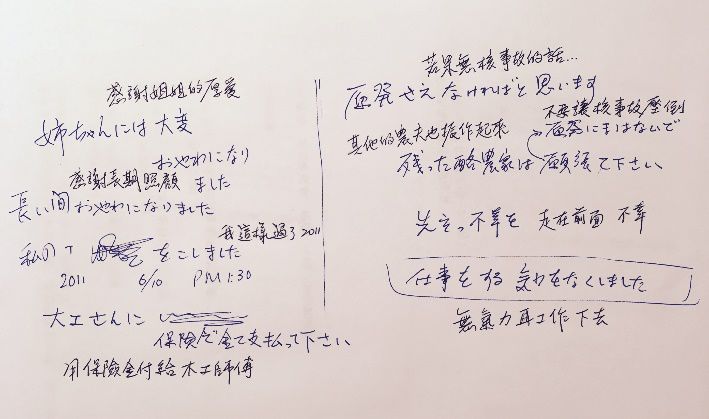 感謝姐姐的厚愛
姉ちゃんには大変
おやわになり
感謝長期照顧 ました
長い間おやわになりました
我這樣過了2011
私の をこしました
2011 6/10 PM 1:30
大工さんに
保険金で全て支払って下さい
用保險金付給木工師傅
若果無核事故的話...
原発さえなければと思います
不要讓核事故壓倒
其他的農夫也振作起來
原発にまけないで
残った酪農家は願張て下さい
先立つ不幸を 走在前面 不幸
仕事をする 気力をなくしました
無氣力再工作下去